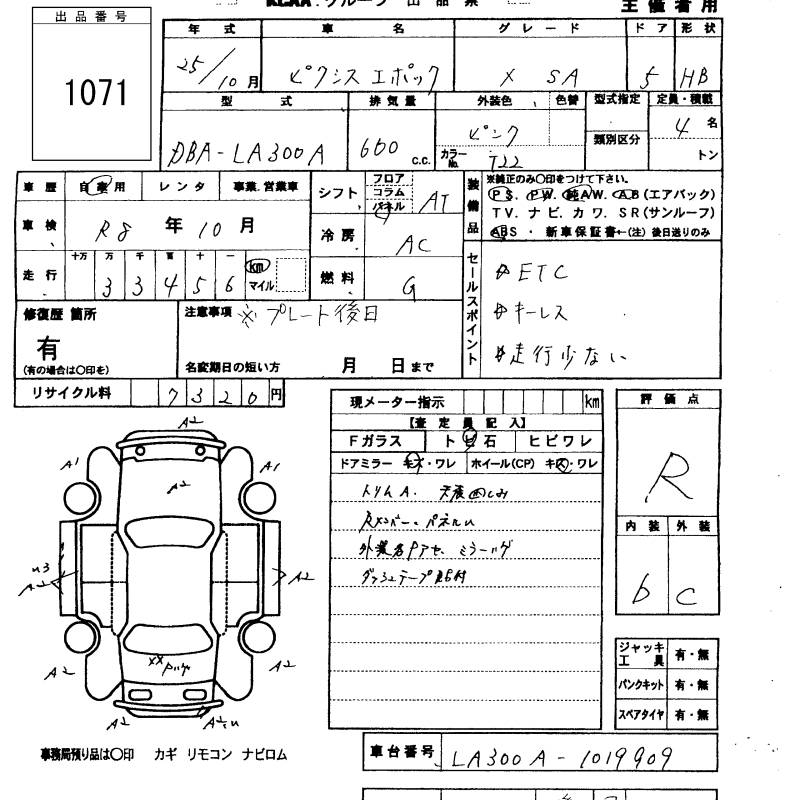 KCAA.グループ 出品票
主催者用
出品番号
1071
年式 車名 グレード ドア 形状
25/10月 ピクシスエポック X SA 5 HB
型式 排気量 外装色 色替 型式指定 定員・積載
DBA-LA300A 660 c.c. ピンク カラーNo. T22 類別区分 4名 トン
車歴 自家用 レンタ 事業.営業車
車検 R8年10月
走行 十万 万 千 百 十 一
33456 km マイル
シフト フロア コラム パネル AT
冷房 AC
燃料 G
装備品 ※純正のみ〇印をつけて下さい。
PS. PW. 純AW. AB(エアバック)
TV. ナビ. カワ. SR(サンルーフ)
ABS ・ 新車保証書←(注) 後日送りのみ
セールスポイント
ETC
キーレス
走行少ない
修復歴 箇所
有
(有の場合は〇印を)
注意事項 ※プレート後日
名変期日の短い方 月 日まで
リサイクル料 7320円
現メーター指示 km
【査定員記入】
Fガラス トビ石 ヒビワレ
ドアミラー キズ・ワレ ホイール(CP) キズ・ワレ
トリムA.
Rメンバー・パネルU
ダッシュテープ
評価点
R
内装 外装
b C
ジャッキ工具 有・無
パンクキット 有・無
スペアタイヤ 有・無
A2
A1
A1
A2
U3
A2
A2
XX
A2
A2
A2
A2
事務局預り品は〇印 カギ リモコン ナビロム
車台番号 LA300A-1019909